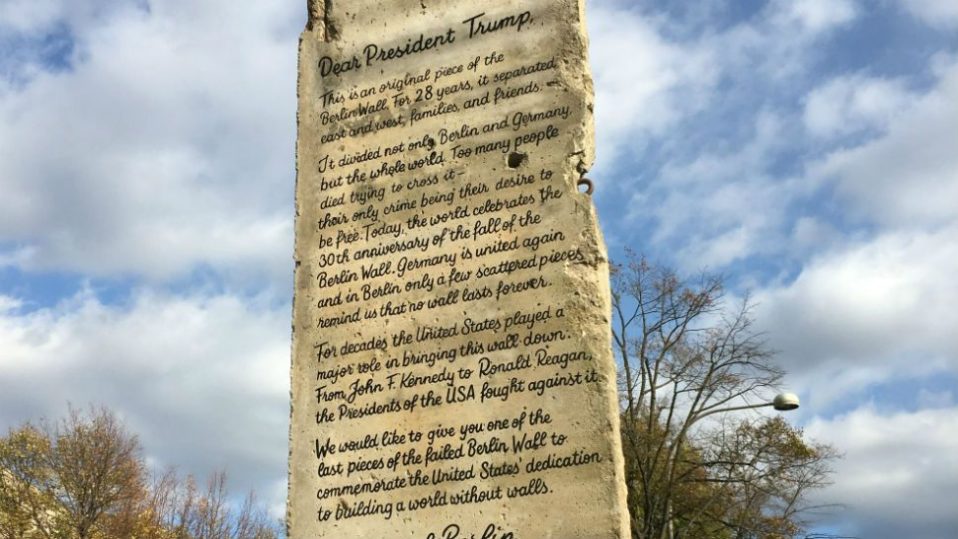 Dear President Trump,
This is an original piece of the
Berlin Wall. For 28 years, it separated
east and west, families, and friends.
It divided not only Berlin and Germany,
but the whole world. Too many people
died trying to cross it –
their only crime being their desire to
be free. Today, the world celebrates the
30th anniversary of the fall of the
Berlin Wall. Germany is united again
and in Berlin only a few scattered pieces
remind us that no wall lasts forever.
For decades the United States played a
major role in bringing this wall down.
From John F. Kennedy to Ronald Reagan,
the Presidents of the USA fought against it.
We would like to give you one of the
last pieces of the failed Berlin Wall to
commemorate the United States' dedication
to building a world without walls.
Berlin